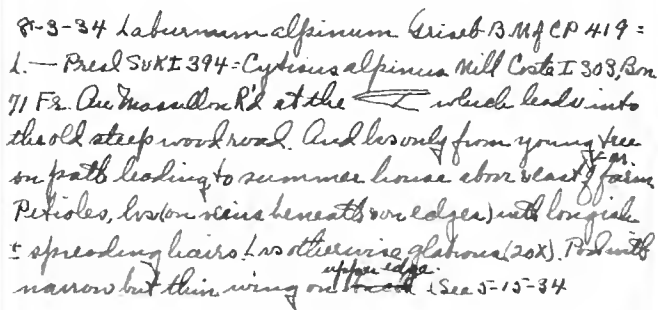 8-3-34 Laburnum alpinum Griseb B M f CP 419 =
L. — Presl SVK I 394 = Cytisus alpinus Mill Coste I 303, Bon
71 Fr. Ave Massillon R'd at the which leads into
the old steep wood road. And lvs only from young tree
on path leading to summer house above east farm
Petioles, lvs (on veins beneath or on edges) with longish
± spreading hairs. Lvs otherwise glabrous (20X). Pod with
narrow but thin wing on upper edge. See 5-15-34